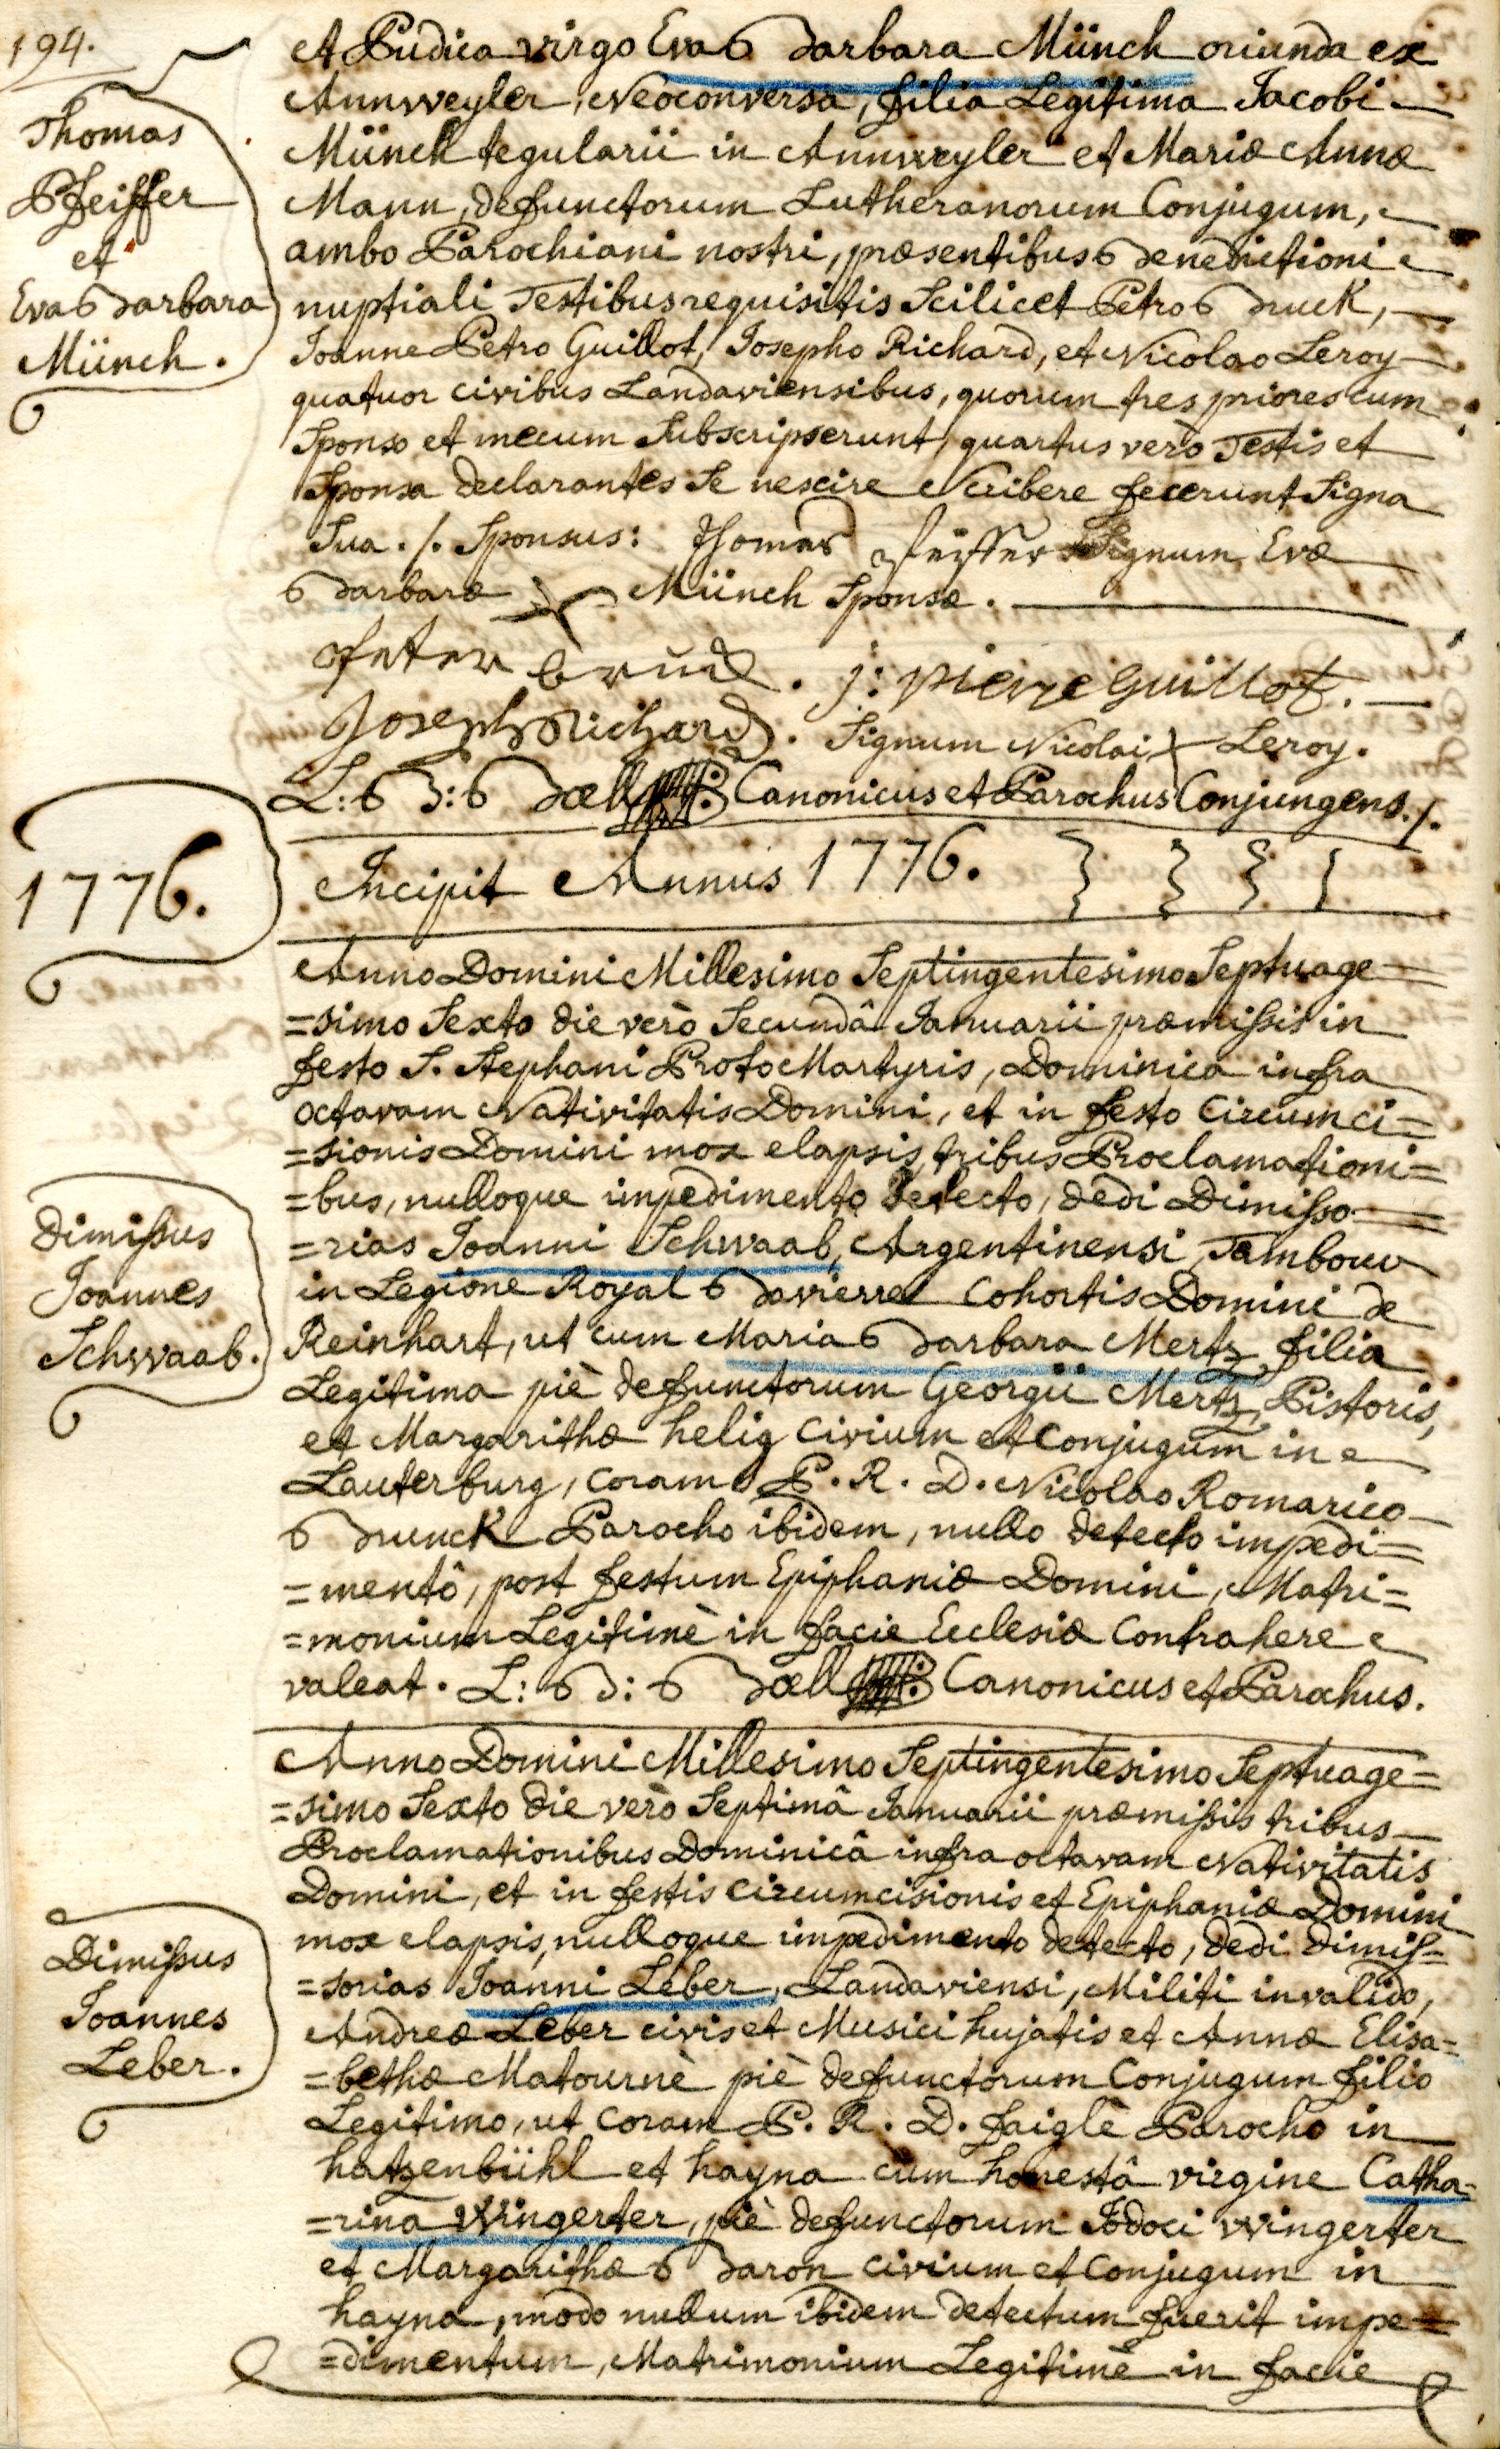 194.
Thomas
Pfeiffer
et
Eva Barbara
Münch.
et Pudica virgo Eva Barbara Münch oriunda ex
Annweyler, Neoconversa, filia Legitima Jacobi
Münch tegularii in Annweyler et Mariæ Annæ
Mann, defunctorum Lutheranorum Conjugum,
ambo Parochiani nostri, præsentibus Benedictioni
nuptiali Testibus requisitis Scilicet Petro Bruck,
Joanne Petro Guillot, Josepho Richard, et Nicolao Leroy
quatuor civibus Landaviensibus, quorum tres priores cum
Sponso et mecum Subscripserunt, quartus verò Testis et
Sponsa declarantes Se nescire Scribere fecerunt Signa
Sua ./. Sponsus: Thomas Pfeiffer Signum Evæ
Barbaræ Münch Sponsæ.
Peter Bruck. j: pierre Guillot.
Joseph Richard. Signum Nicolai Leroy.
L: B: Bœll Canonicus et Parochus Conjungens ./.
1776.
Incipit Annus 1776.
Anno Domini Millesimo Septingentesimo Septuage=
=simo Sexto die verò Secundâ Januarii præmissis in
festo S. Stephani ProtoMartyris, Dominica infra
octavam Nativitatis Domini, et in festo Circumci=
=sionis Domini mox elapsis tribus Proclamationi=
=bus, nulloque impedimento detecto, dedi Dimisso=
Dimissus
Joannes
Schwaab.
=rias Joanni Schwaab, Argentinensi, Tambour
in Legione Royal Bavierre Cohortis Domini de
Reinhart, ut cum Maria Barbara Mertz, filia
Legitima piè defunctorum Georgii Mertz, Pistoris,
et Margarithæ helig Civium et Conjugum in
Lauterburg, coram P. R. D. Nicolao Romarico
Brunck Parocho ibidem, nullo detecto impedi=
=mentô, post festum Epiphaniæ Domini, Matri=
=monium Legitimè in facie Ecclesiæ Contrahere
valeat. L: B: Bœll Canonicus et Parochus.
Anno Domini Millesimo Septingentesimo Septuage=
=simo Sexto die verò Septimâ Januarii præmissis tribus
Proclamationibus Dominicâ infra octavam Nativitatis
Domini, et in festis circumcisionis et Epiphaniæ Domini
mox elapsis, nulloque impedimento detecto, dedi Dimis=
Dimissus
Joannes
Leber.
=sorias Joanni Leber, Landaviensi, Militi invalido,
Andreæ Leber civis et Musici hujatis et Annæ Elisa=
=bethæ Matournè piè defunctorum Conjugum filio
Legitimo, ut coram P. R. D. faiglè Parocho in
hatzenbühl et hayna cum honestâ virgine Catha=
=rina Wingerter, piè defunctorum Jodoci Wingerter
et Margarithæ Baron civium et Conjugum in
hayna, modo nullum ibidem detectum fuerit impe=
=dimentum, Matrimonium Legitimè in facie